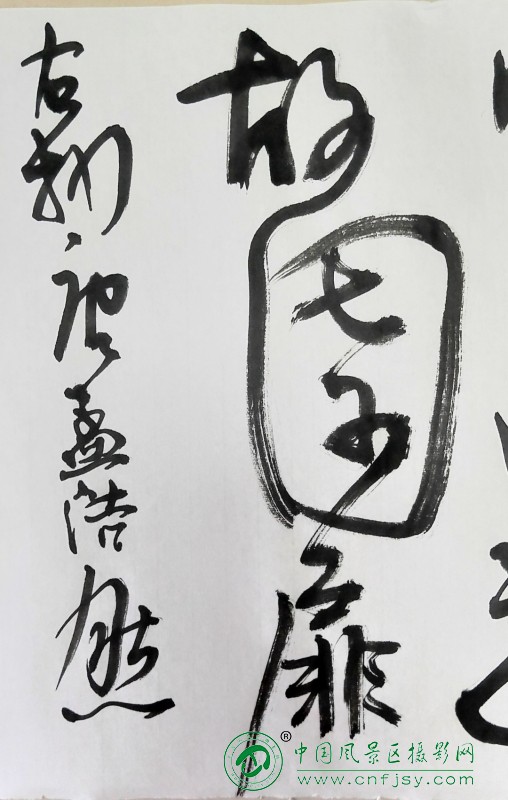 故園扉
右唐孟浩然
中国风景区摄影网
www.cnfjsy.com
®